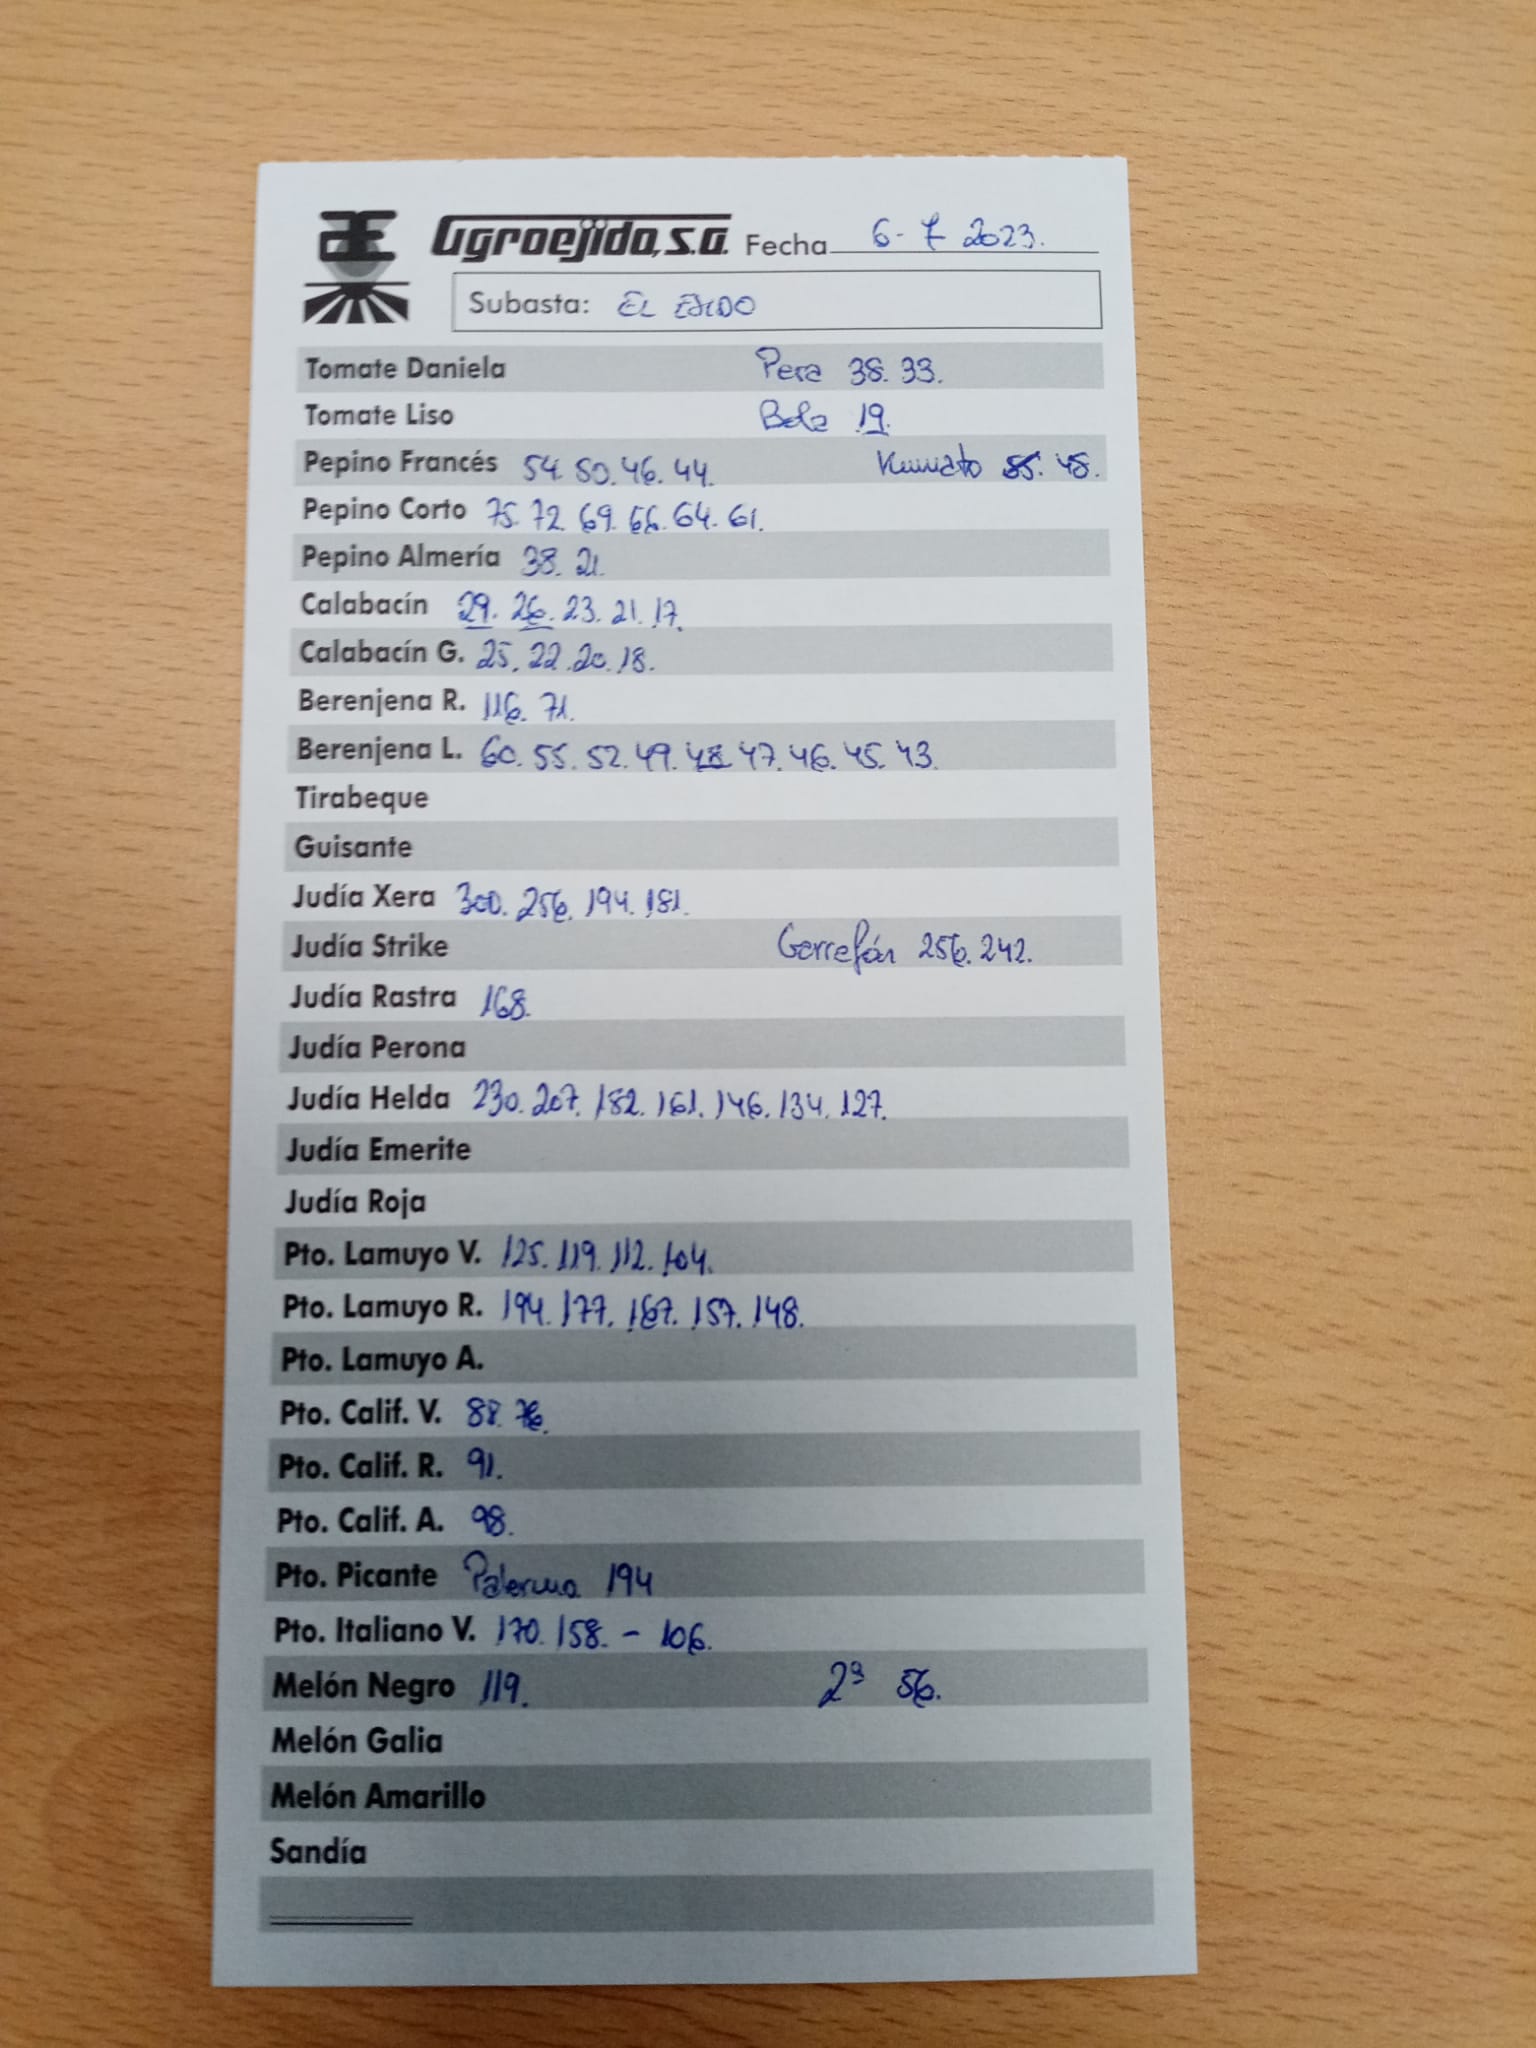 Agroejido, S.A. Fecha 6-7 2023.
Subasta: EL EJIDO
Tomate Daniela Pera 38. 33.
Tomate Liso Bola 19.
Pepino Francés 54. 50. 46. 44. Kumato 55. 48.
Pepino Corto 75. 72. 69. 66. 64. 61.
Pepino Almería 38. 21.
Calabacín 29. 26. 23. 21. 17.
Calabacín G. 25. 22. 20. 18.
Berenjena R. 116. 71.
Berenjena L. 60. 55. 52. 49. 48 47. 46. 45. 43.
Tirabeque
Guisante
Judía Xera 300. 256. 194. 181.
Judía Strike Garrafón 256. 242.
Judía Rastra 168.
Judía Perona
Judía Helda 230. 207. 182. 161. 146. 134. 127.
Judía Emerite
Judía Roja
Pto. Lamuyo V. 125. 119. 112. 104.
Pto. Lamuyo R. 194. 177. 167. 157. 148.
Pto. Lamuyo A.
Pto. Calif. V. 88. 76.
Pto. Calif. R. 91.
Pto. Calif. A. 98.
Pto. Picante Palermo 194
Pto. Italiano V. 170. 158. - 106.
Melón Negro 119. 2ª 56.
Melón Galia
Melón Amarillo
Sandía